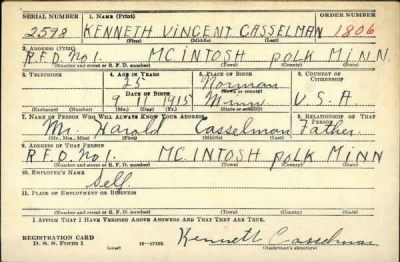 SERIAL NUMBER 1. NAME (Print) ORDER NUMBER
2598 KENNETH VINCENT CASSELMAN 1806
(First) (Middle) (Last)
2. ADDRESS (Print)
R.F.D. No 1. MCINTOSH POLK MINN.
(Number and street or R. F. D. number) (Town) (County) (State)
3. TELEPHONE 4. AGE IN YEARS 5. PLACE OF BIRTH 6. COUNTRY OF CITIZENSHIP
25 Norman
DATE OF BIRTH (Town or county)
9 1915 Minn U.S.A.
(Exchange) (Number) (Mo.) (Day) (Yr.) (State or country)
7. NAME OF PERSON WHO WILL ALWAYS KNOW YOUR ADDRESS 8. RELATIONSHIP OF THAT PERSON
Mr. Harold Casselman Father
(Mr., Mrs., Miss) (First) (Middle) (Last)
9. ADDRESS OF THAT PERSON
R.F.D. No MCINTOSH POLK MINN
(Number and street or R. F. D. number) (Town) (County) (State)
10. EMPLOYER'S NAME
Self
11. PLACE OF EMPLOYMENT OR BUSINESS
(Number and street or R. F. D. number) (Town) (County) (State)
I AFFIRM THAT I HAVE VERIFIED ABOVE ANSWERS AND THAT THEY ARE TRUE.
REGISTRATION CARD
D. S. S. Form 1 Kenneth Casselman
(Registrant's signature)